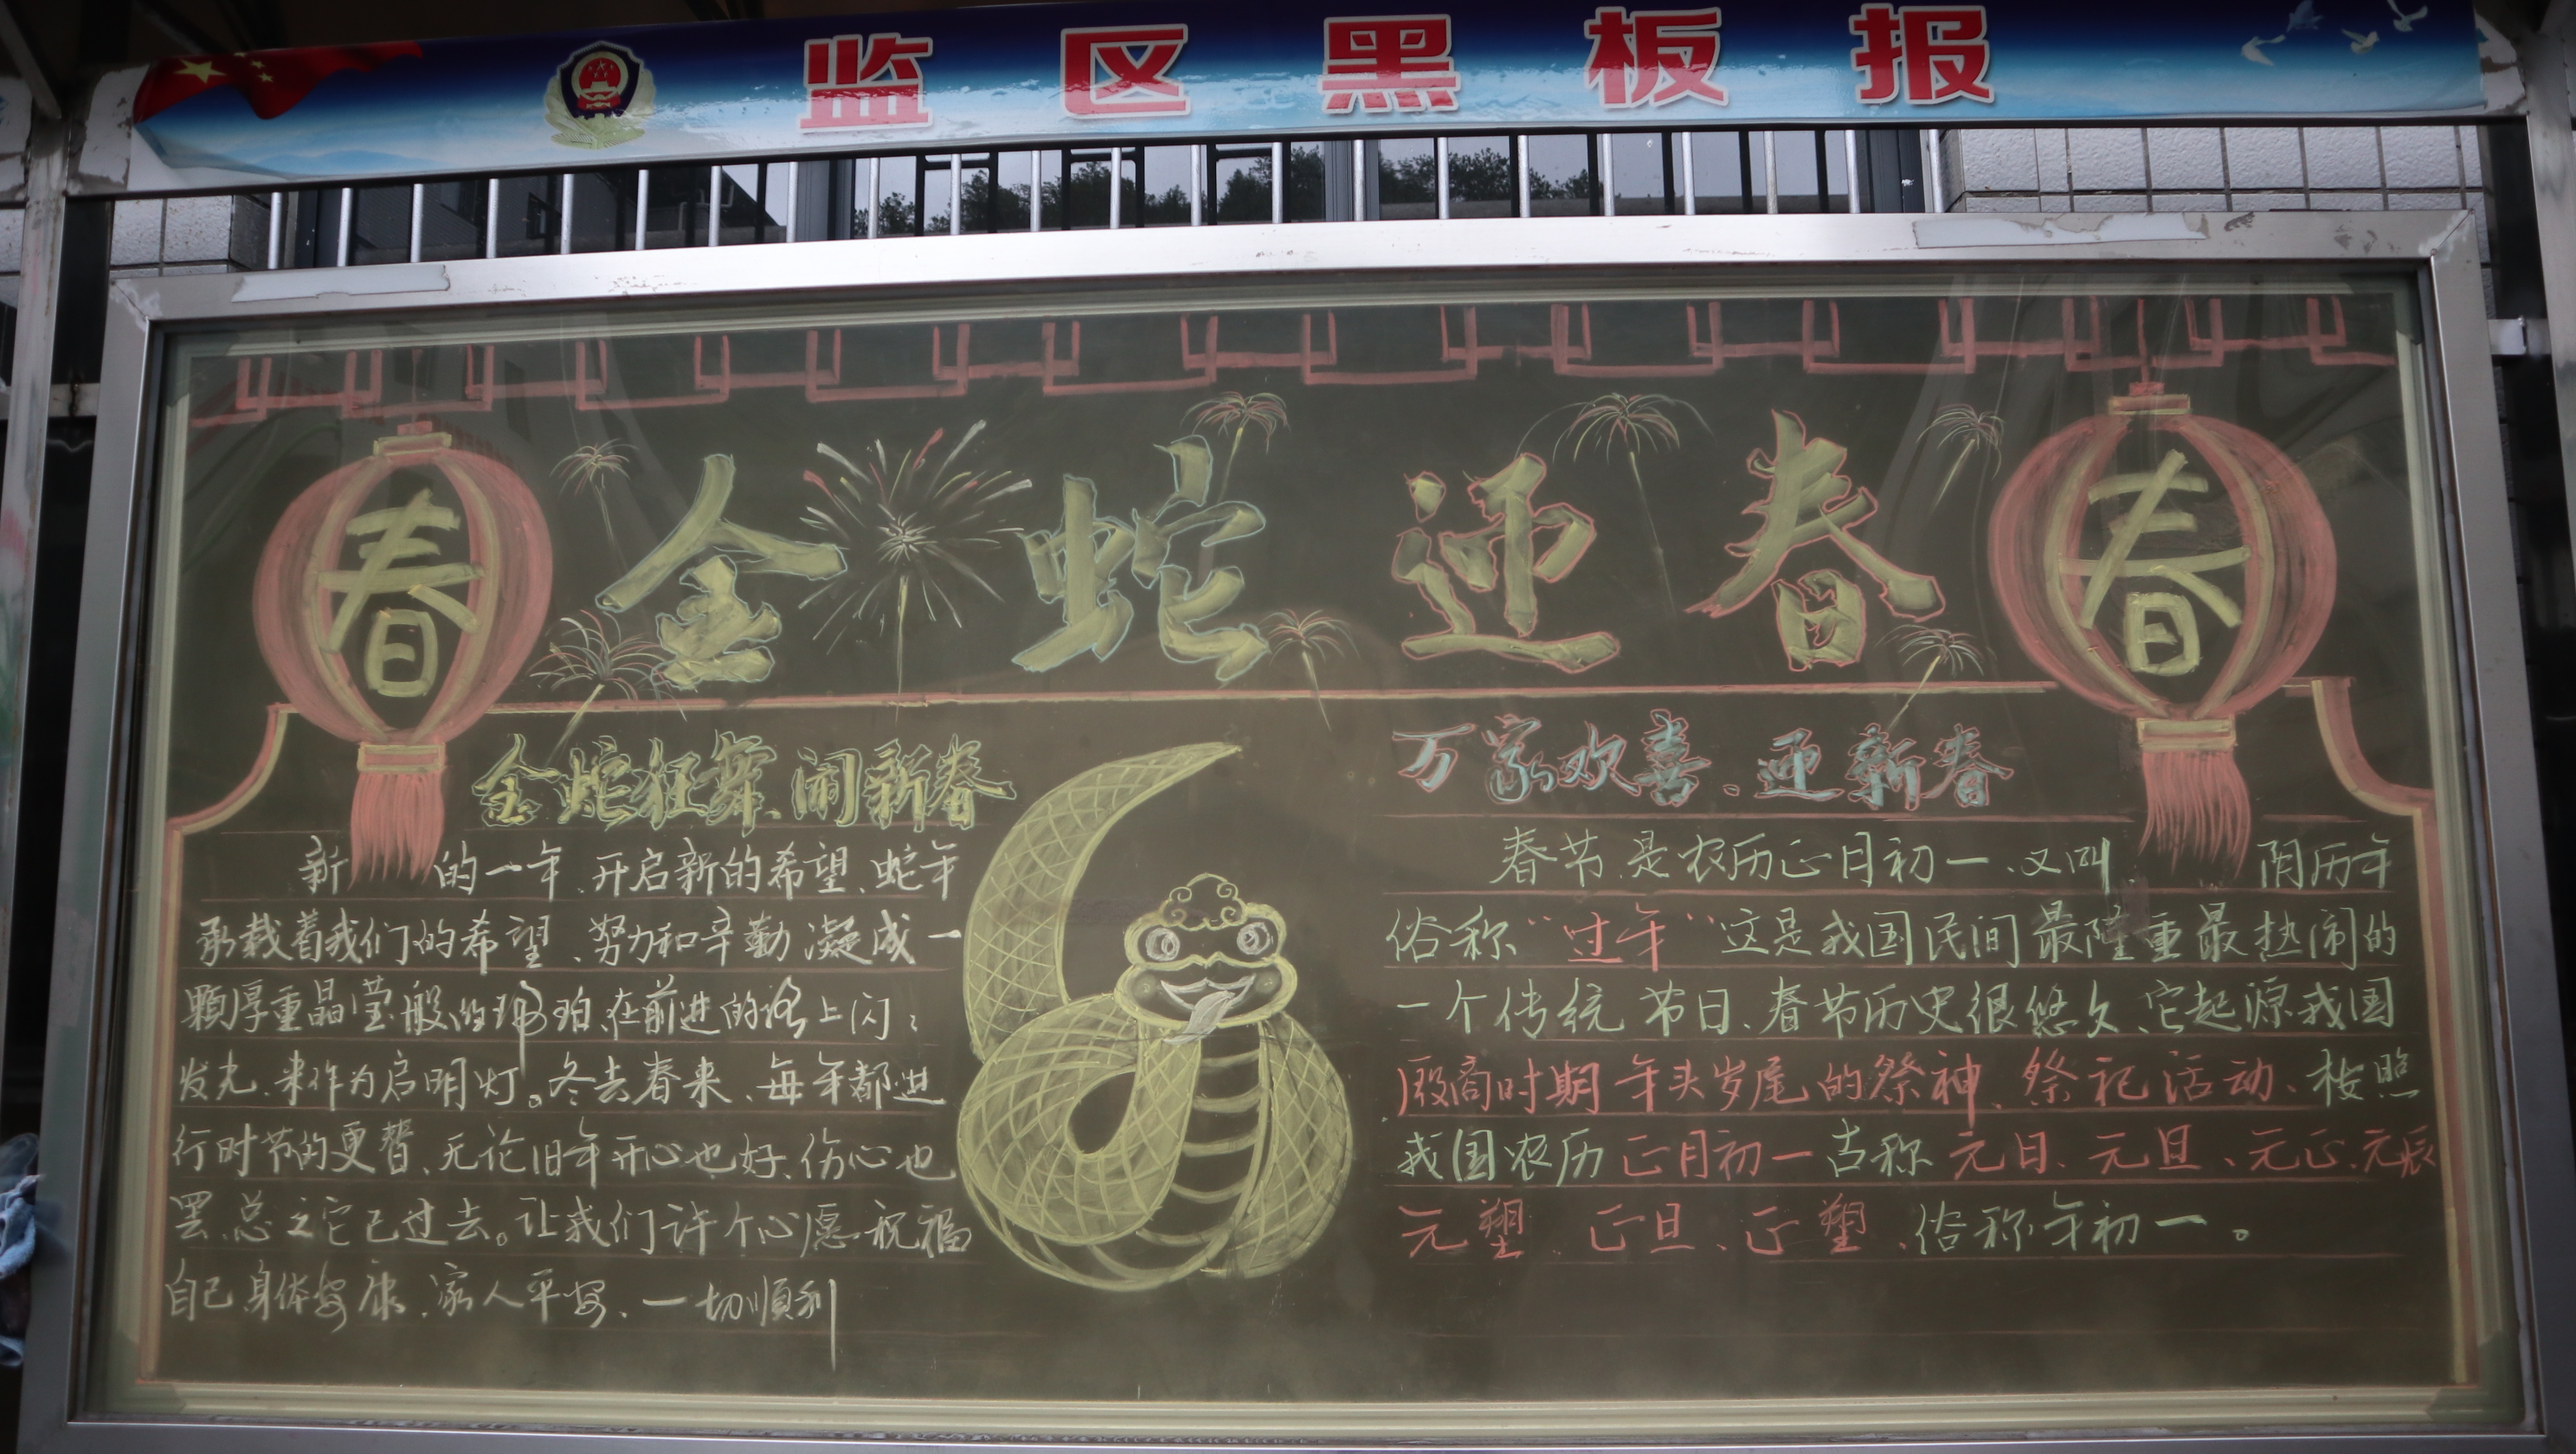 监区黑板报
春 金蛇迎春 春
金蛇狂舞、闹新春
新 的一年、开启新的希望、蛇年
承载着我们的希望、努力和辛勤凝成一
颗厚重晶莹般的琥珀、在前进的路上闪
发光、来作为启明灯。冬去春来、每年都进
行时节的更替、无论旧年开心也好、伤心也
罢、总之它已过去。让我们许个心愿祝福
自己身体安康、家人平安、一切顺利
万家欢喜、迎新春
春节、是农历正月初一、又叫 阴历年
俗称“过年”这是我国民间最隆重最热闹的
一个传统节日、春节历史很悠久、它起源我国
殷商时期年头岁尾的祭神、祭祀活动、按照
我国农历正月初一古称元日、元旦、元正、元辰
元塑、正旦、正塑、俗称年初一。